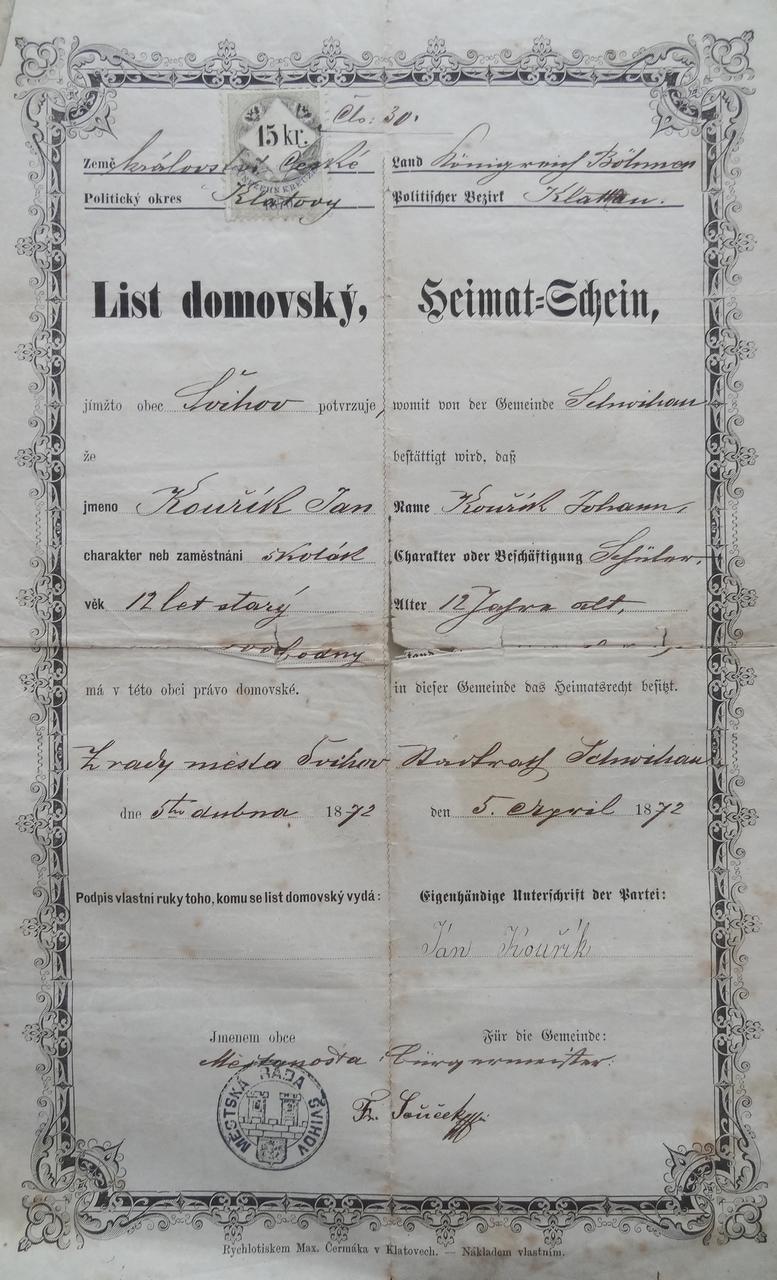 Čís: 30.
15 kr.
Země království České
Land Königreich Böhmen
Politický okres Klatovy
Politischer Bezirk Klattau.
List domovský,
Heimat-Schein,
jímžto obec Švihov potvrzuje,
womit von der Gemeinde Schwihau
že
bestättigt wird, daß
jmeno Kouřík Jan
Name Kouřík Johann,
charakter neb zaměstnání školák
Charakter oder Beschäftigung Schüler,
věk 12 let starý
Alter 12 Jahre alt,
svobodný
má v této obci právo domovské.
in dieser Gemeinde das Heimatsrecht besitzt.
Z rady města Švihov
Stadtrath Schwihau
dne 5ho dubna 1872
den 5. April 1872
Podpis vlastní ruky toho, komu se list domovský vydá:
Eigenhändige Unterschrift der Partei:
Ján Kouřík
Jmenem obce
Für die Gemeinde:
Měšťanosta : Bürgermeister:
MĚSTSKÁ RADA ŠVIHOV
Fr. Souček
Rychlotiskem Max. Čermáka v Klatovech. — Nákladem vlastním.